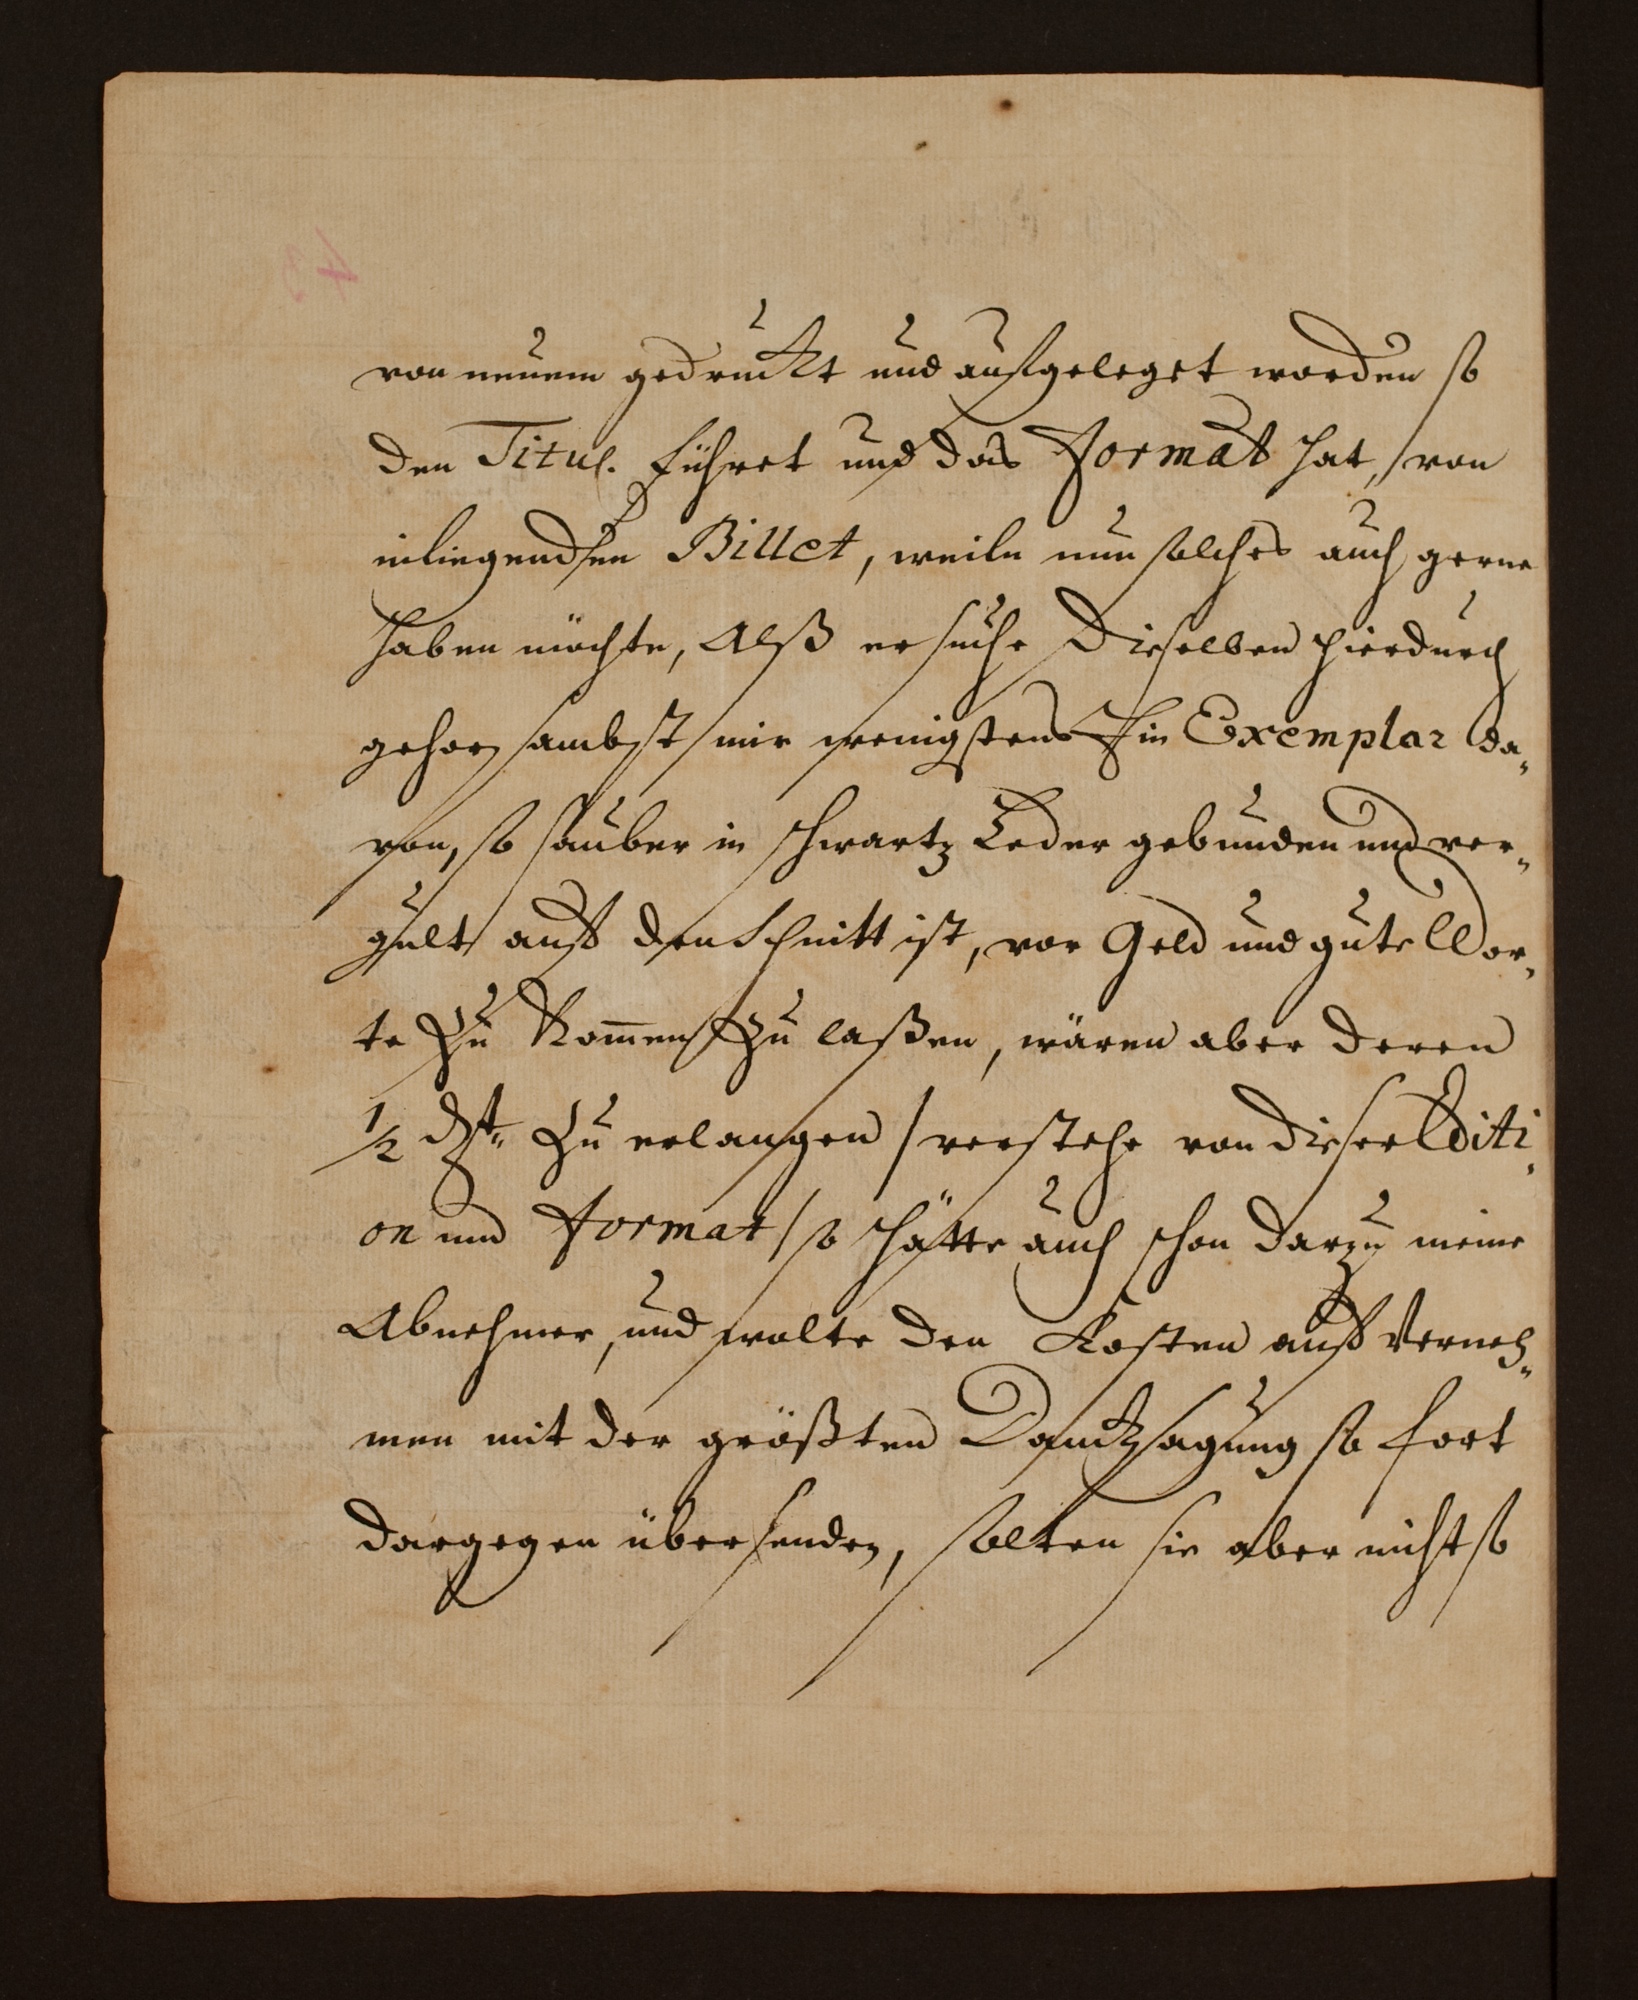 von neuem gedruckt und aufgeleget worden so
den Titul. führet und das Format hat, von
inliegendten Billet, weiln nun solches auch gerne
haben möchte, Alß ersuche Dieselben hierdurch
gehorsambst mir wenigstens Ein Exemplar da„
von, so sauber in schwartz Leder gebunden und ver„
gült auff den Schnitt ist, vor Geld und gute Wor„
te Zu Kom̅en Zu laßen, wären aber deren
1/2 Zu erlangen / verstehe von dieser Editi„
on und Format / so hätte auch schon darzu meine
Abnehmer, und wolte den Kosten auff Verneh„
men mit der größten Dancksagung so fort
dargegen übersenden, solten sie aber nicht so